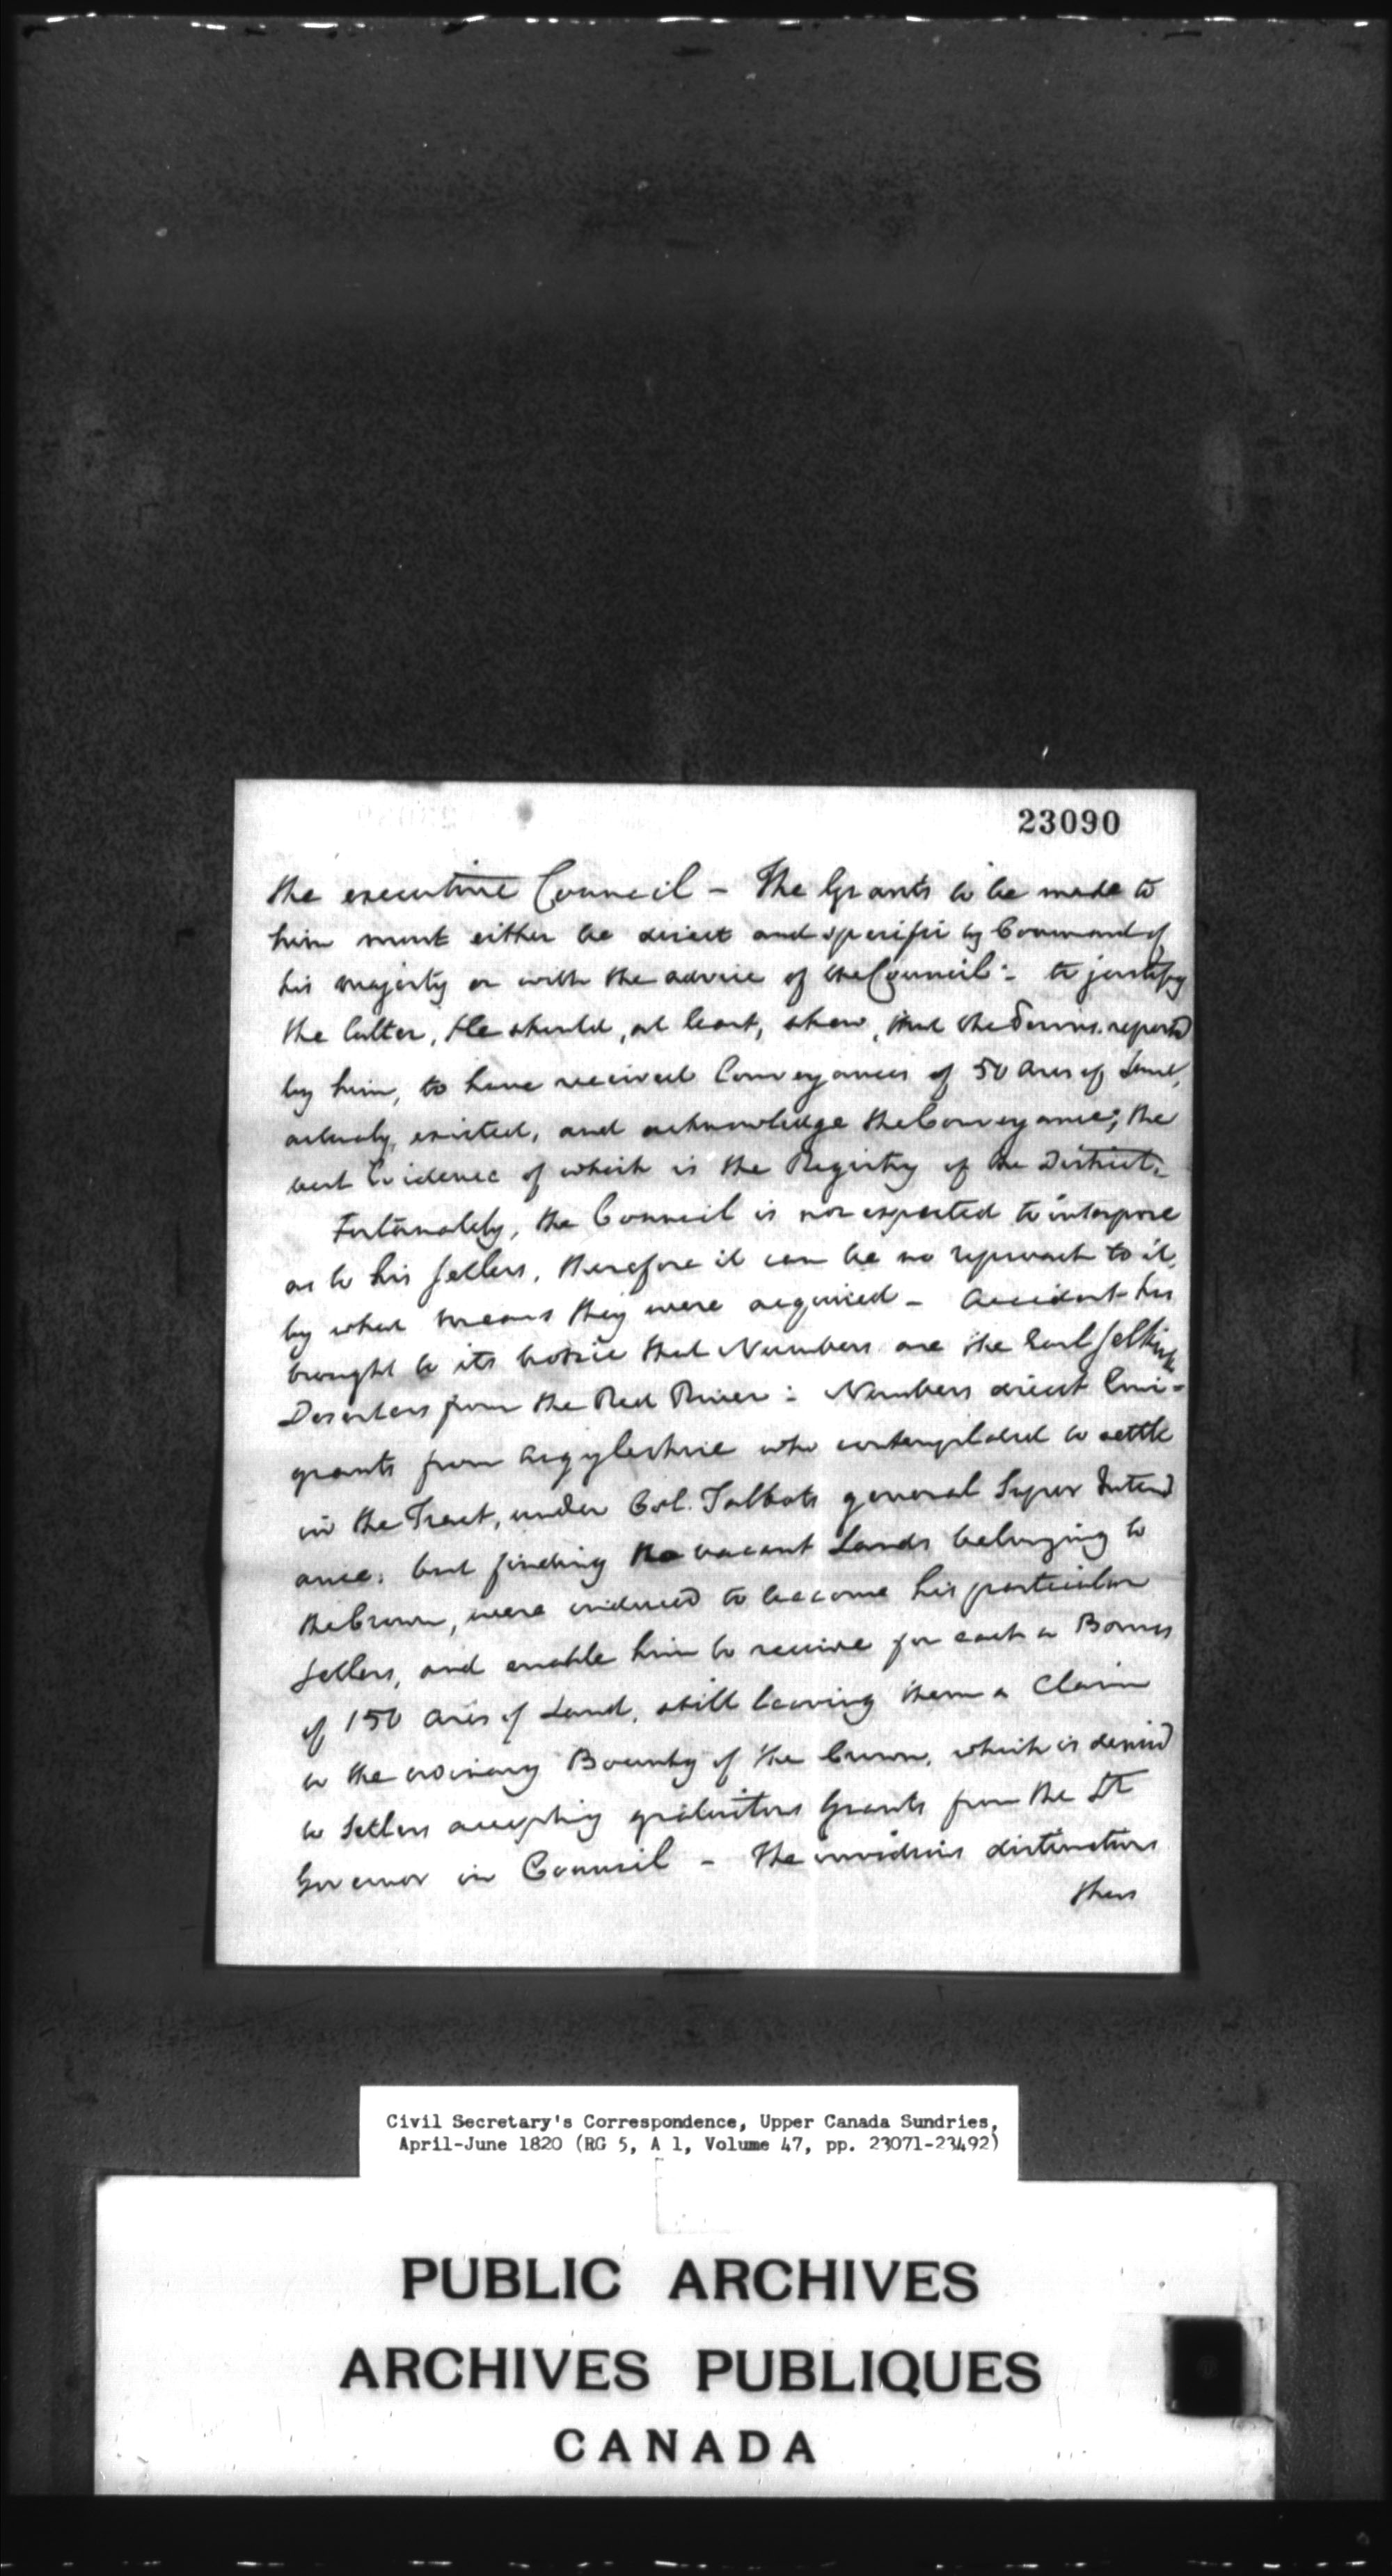 23090
the executive Council – The Grants to be made to
him must either be direct and specific by Command of
his Majesty or with the advice of the Council:- to justify
the latter, He should, at least, show, that the Persons reported
by him, to have received Conveyances of 50 Acres of Land,
actually, existed, and acknowledge the Conveyance; the
best Evidence of which is the Registry of the District.
Fortunately, the Council is not expected to interpose
as to his Settlers, therefore it can be no reproach to it,
by what means they were acquired – Accident has
brought to its notice that Numbers are the Earl Selkirk
Deserters from the Red River: Numbers direct Emi-
grants from Argyleshire who contemplated to settle
in the Tract, under Col. Talbots general Super Intend
ance: but finding no vacant Lands belonging to
the Crown, were induced to become his particular
Settlers, and enable him to receive for each a Bonus
of 150 Acres of Land, still leaving them a Claim
to the ordinary Bounty of the Crown, which is denied
to Settlers accepting gratuitous Grants from the Lt
Governor in Council – The invidious distinctions
thus
Civil Secretary's Correspondence, Upper Canada Sundries,
April-June 1820 (RG 5, A 1, Volume 47, pp. 23071-23492)
PUBLIC ARCHIVES
ARCHIVES PUBLIQUES
CANADA